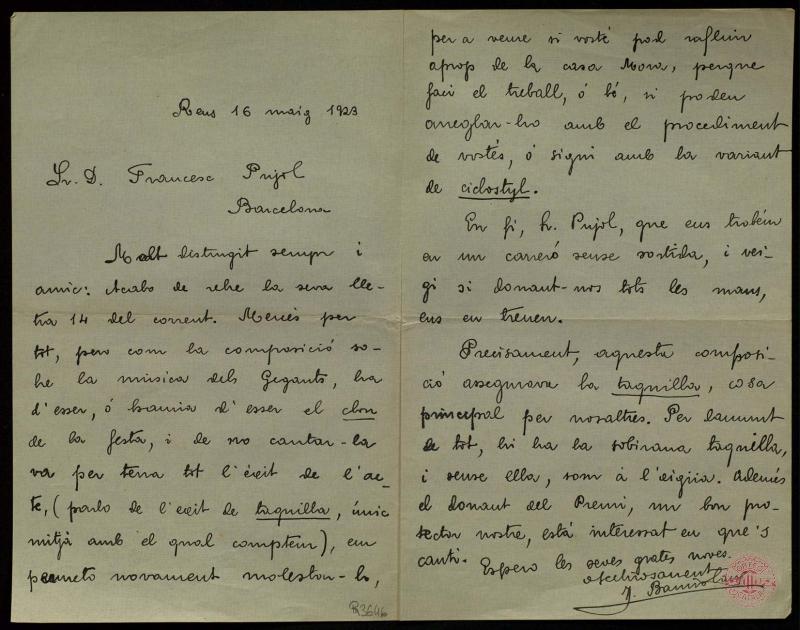 Reus 16 maig 1923
Sr. D. Francesc Pujol
Barcelona
Molt distingit sempr i
amic: Acabo de rebre la seva lle-
tra 14 del corrent. Mercès per
tot, pero com la composició so-
bre la música dels Gegants, ha
d'esser, ó havia d'esser el clou
de la festa, i de no cantar-la
va per terra tot l'éxit de l'ac-
te, (parlo de l'exit de taquilla, únic
mitjà amb el qual comptem), em
permeto novament molestar-lo,
per a veure si vosté pod influir
aprop de la casa Mora, perque
faci el treball, ó bé, si poden
arreglar-ho amb el procediment
de vostés, ó sigui amb la variant
de ciclostyl.
En fi, Sr. Pujol, que ens trobém
en un carreró sense sortida, i vei-
gi si donant-nos tots les mans,
ens en treuen.
Precisament, aquesta composi-
ció assegurava la taquilla, cosa
principal per nosaltres. Per damunt
de tot, hi ha la sobirana taquilla,
i sense ella, som à l'aigüa. Además
el donant del Premi, un bon pro-
tector nostre, está interessat en que's
canti. Espero les seves grates noves.
afectuosament
R3646